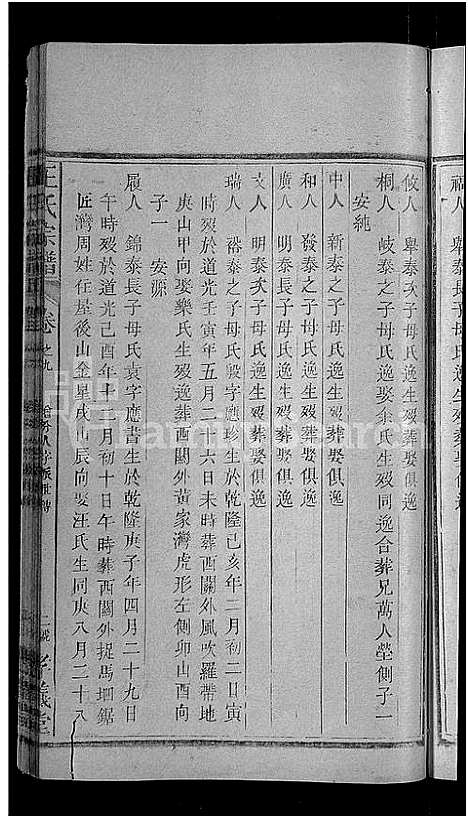 福人 與泰長子母氏逸生歿葬娶俱逸
攸人 與泰次子母氏逸生歿葬娶俱逸
桐人 岐泰之子母氏逸娶余氏生歿同逸合葬兄萬人塋側子一
安純
中人 新泰之子母氏逸生歿葬娶俱逸
和人 發泰之子母氏逸生歿葬娶俱逸
廣人 明泰長子母氏逸生歿葬娶俱逸
文人 明泰次子母氏逸生歿葬娶俱逸
瑞人 裕泰之子母氏 字應珍生於乾隆己亥年二月初二日寅
時歿於道光壬寅年五月二十六日未時葬西關外風吹羅帶地
庚山甲向娶樂氏生歿逸葬西關外黃家灣虎形左側卯山酉向
子一 安源
履人 錦泰長子母氏袁字應書生於乾隆庚子年四月二十九日
午時歿於道光己酉年十一月初十日午時葬西關外捉馬垇鋸
匠灣周姓住屋後山金星戌山辰向娶汪氏生同庚八月二十八
王氏宗譜 卷之九 人字派世 孝義堂